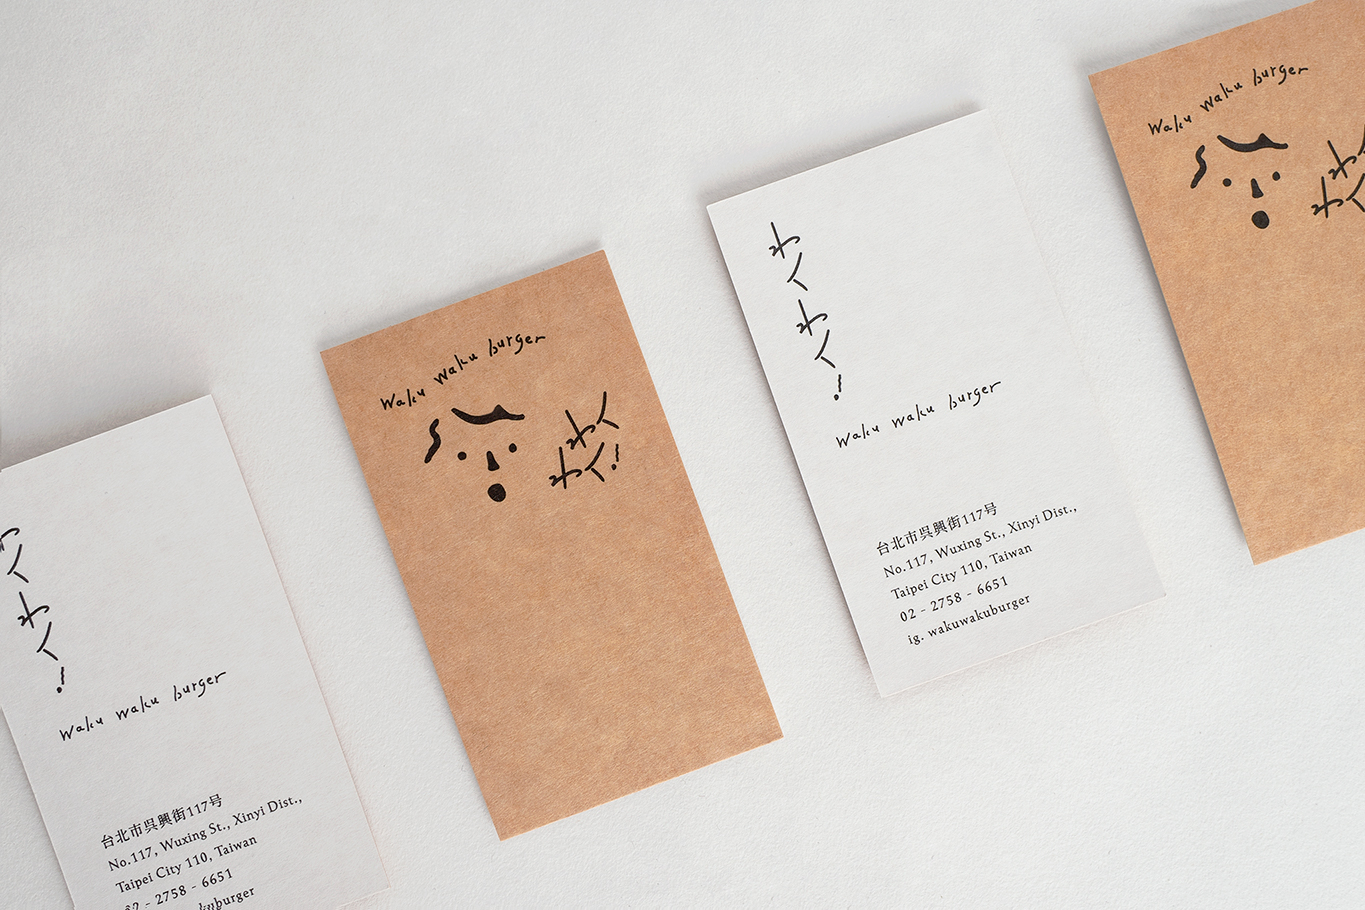 わくわく!
waku waku burger
台北市呉興街117号
No.117, Wuxing St., Xinyi Dist.,
Taipei City 110, Taiwan
02 - 2758 - 6651
kuburger
waku waku burger
わく
わく!
わくわく!
waku waku burger
台北市呉興街117号
No.117, Wuxing St., Xinyi Dist.,
Taipei City 110, Taiwan
02 - 2758 - 6651
ig. wakuwakuburger
waku waku burger
わ
わく